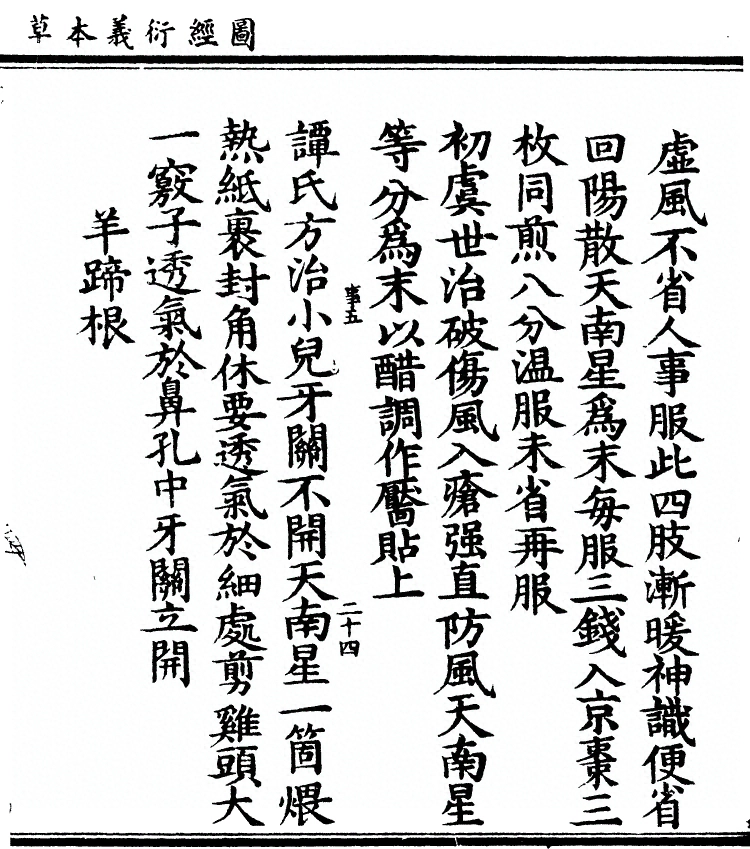 圖經衍義本草
虛風不省人事服此四肢漸暖神識便省
回陽散天南星爲末每服三錢入京棗三
枚同煎八分温服未省再服
初虞世治破傷風入瘡强直防風天南星
等分爲末以醋調作靨貼上
事五
二十四
譚氏方治小兒牙關不開天南星一箇煨
熱紙裹封角休要透氣於細處剪雞頭大
一竅子透氣於鼻孔中牙關立開
羊蹄根